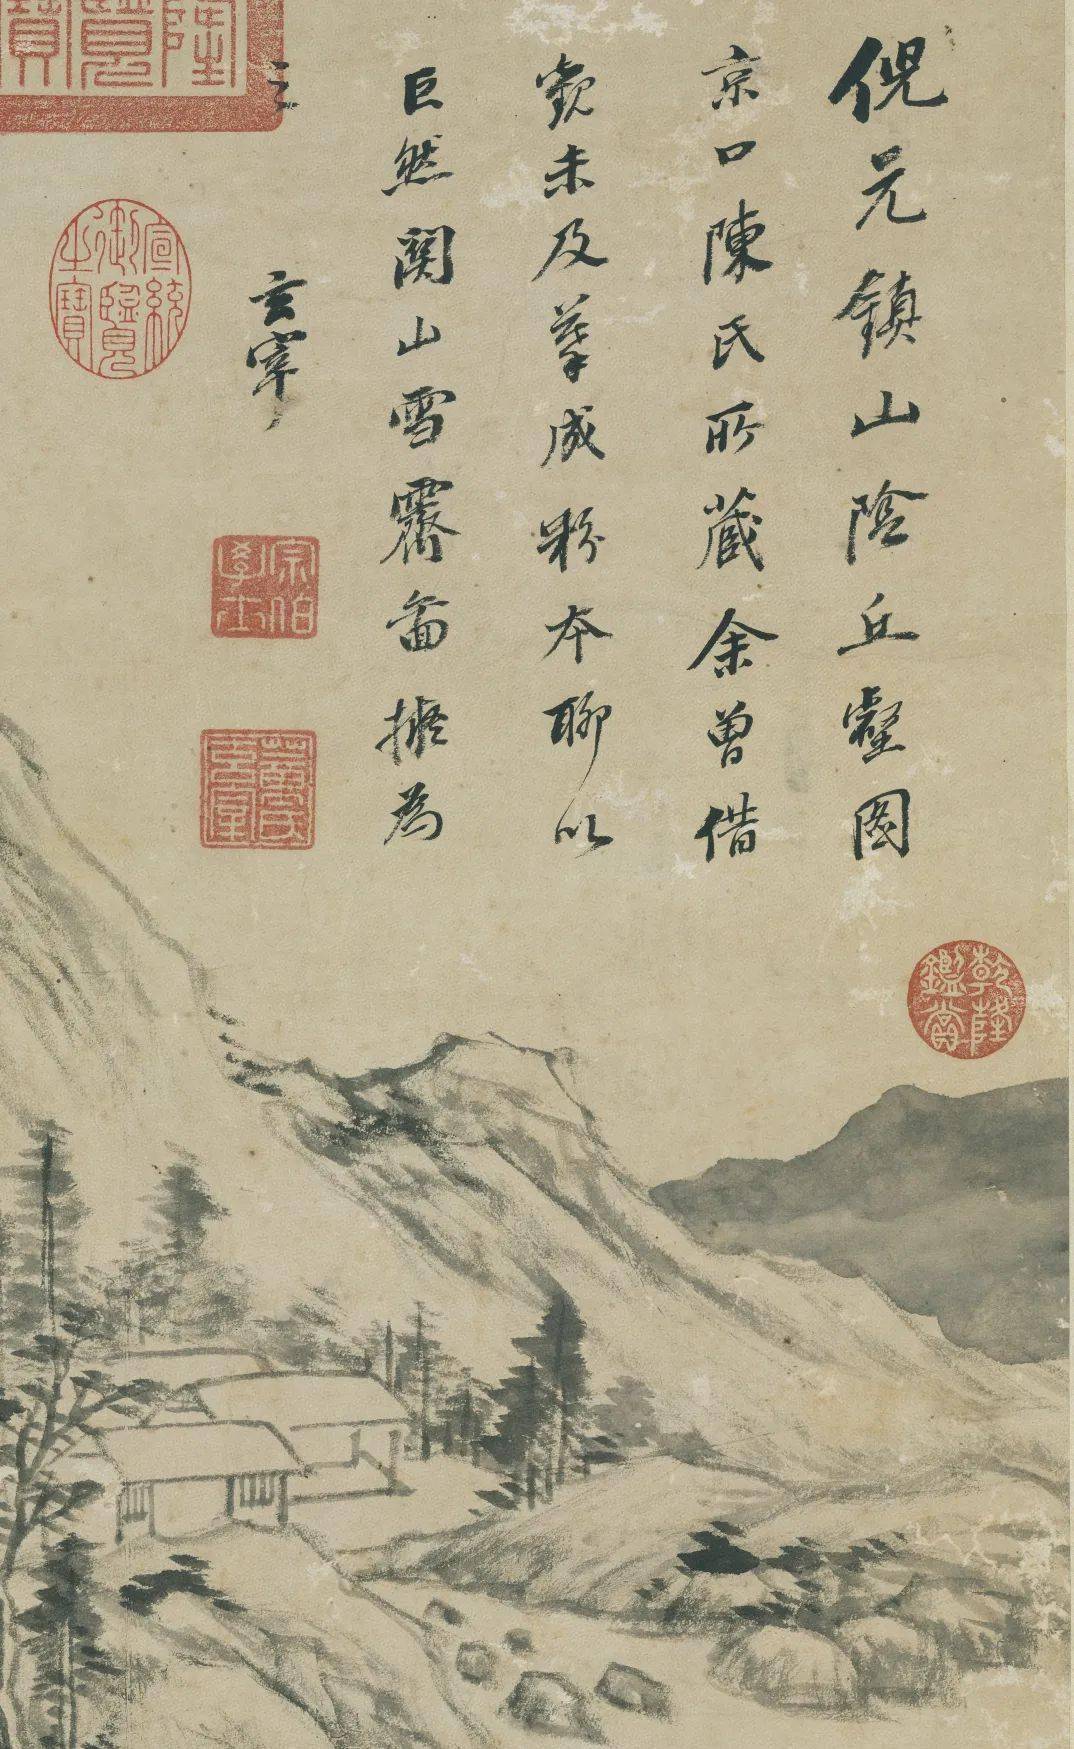 倪元鎮山陰丘壑圖
京口陳氏所藏余曾借
觀未及摹成粉本聊以
巨然關山雪霽圖擬為
之
玄宰
乾隆鑑賞
宗伯學士
董氏玄宰
宣統御覽之寶
隆覽寶